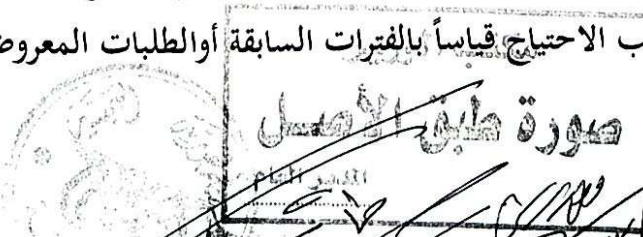 ب الاحتياج قياساً بالفترات السابقة أوالطلبات المعروض
صورة طبق الأصل
المدير العام